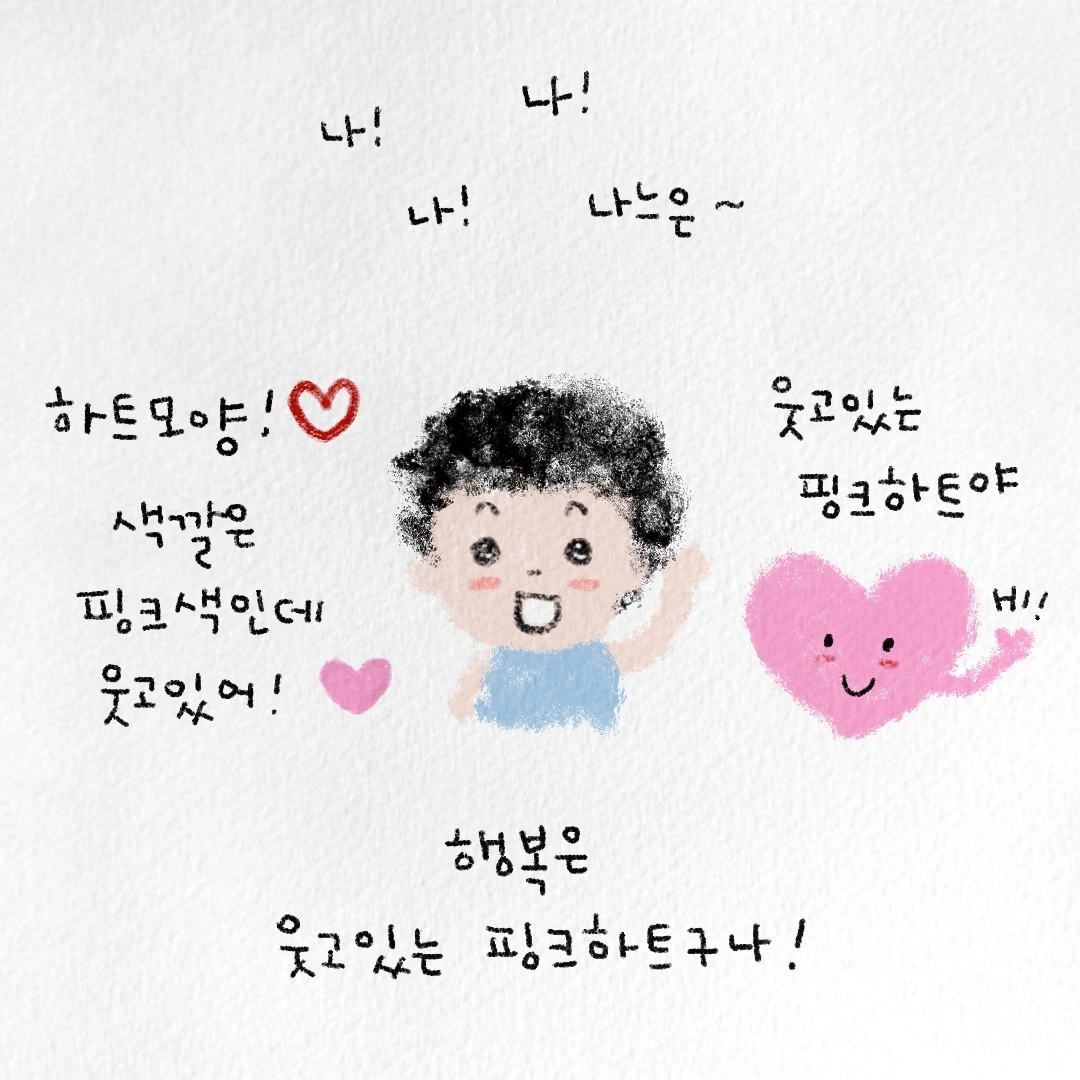 나!
나!
나!
나느은 ~
하트모양!
색깔은
핑크색인데
웃고있어!
웃고있는
핑크하트야
HI!
행복은
웃고있는 핑크하트구나!